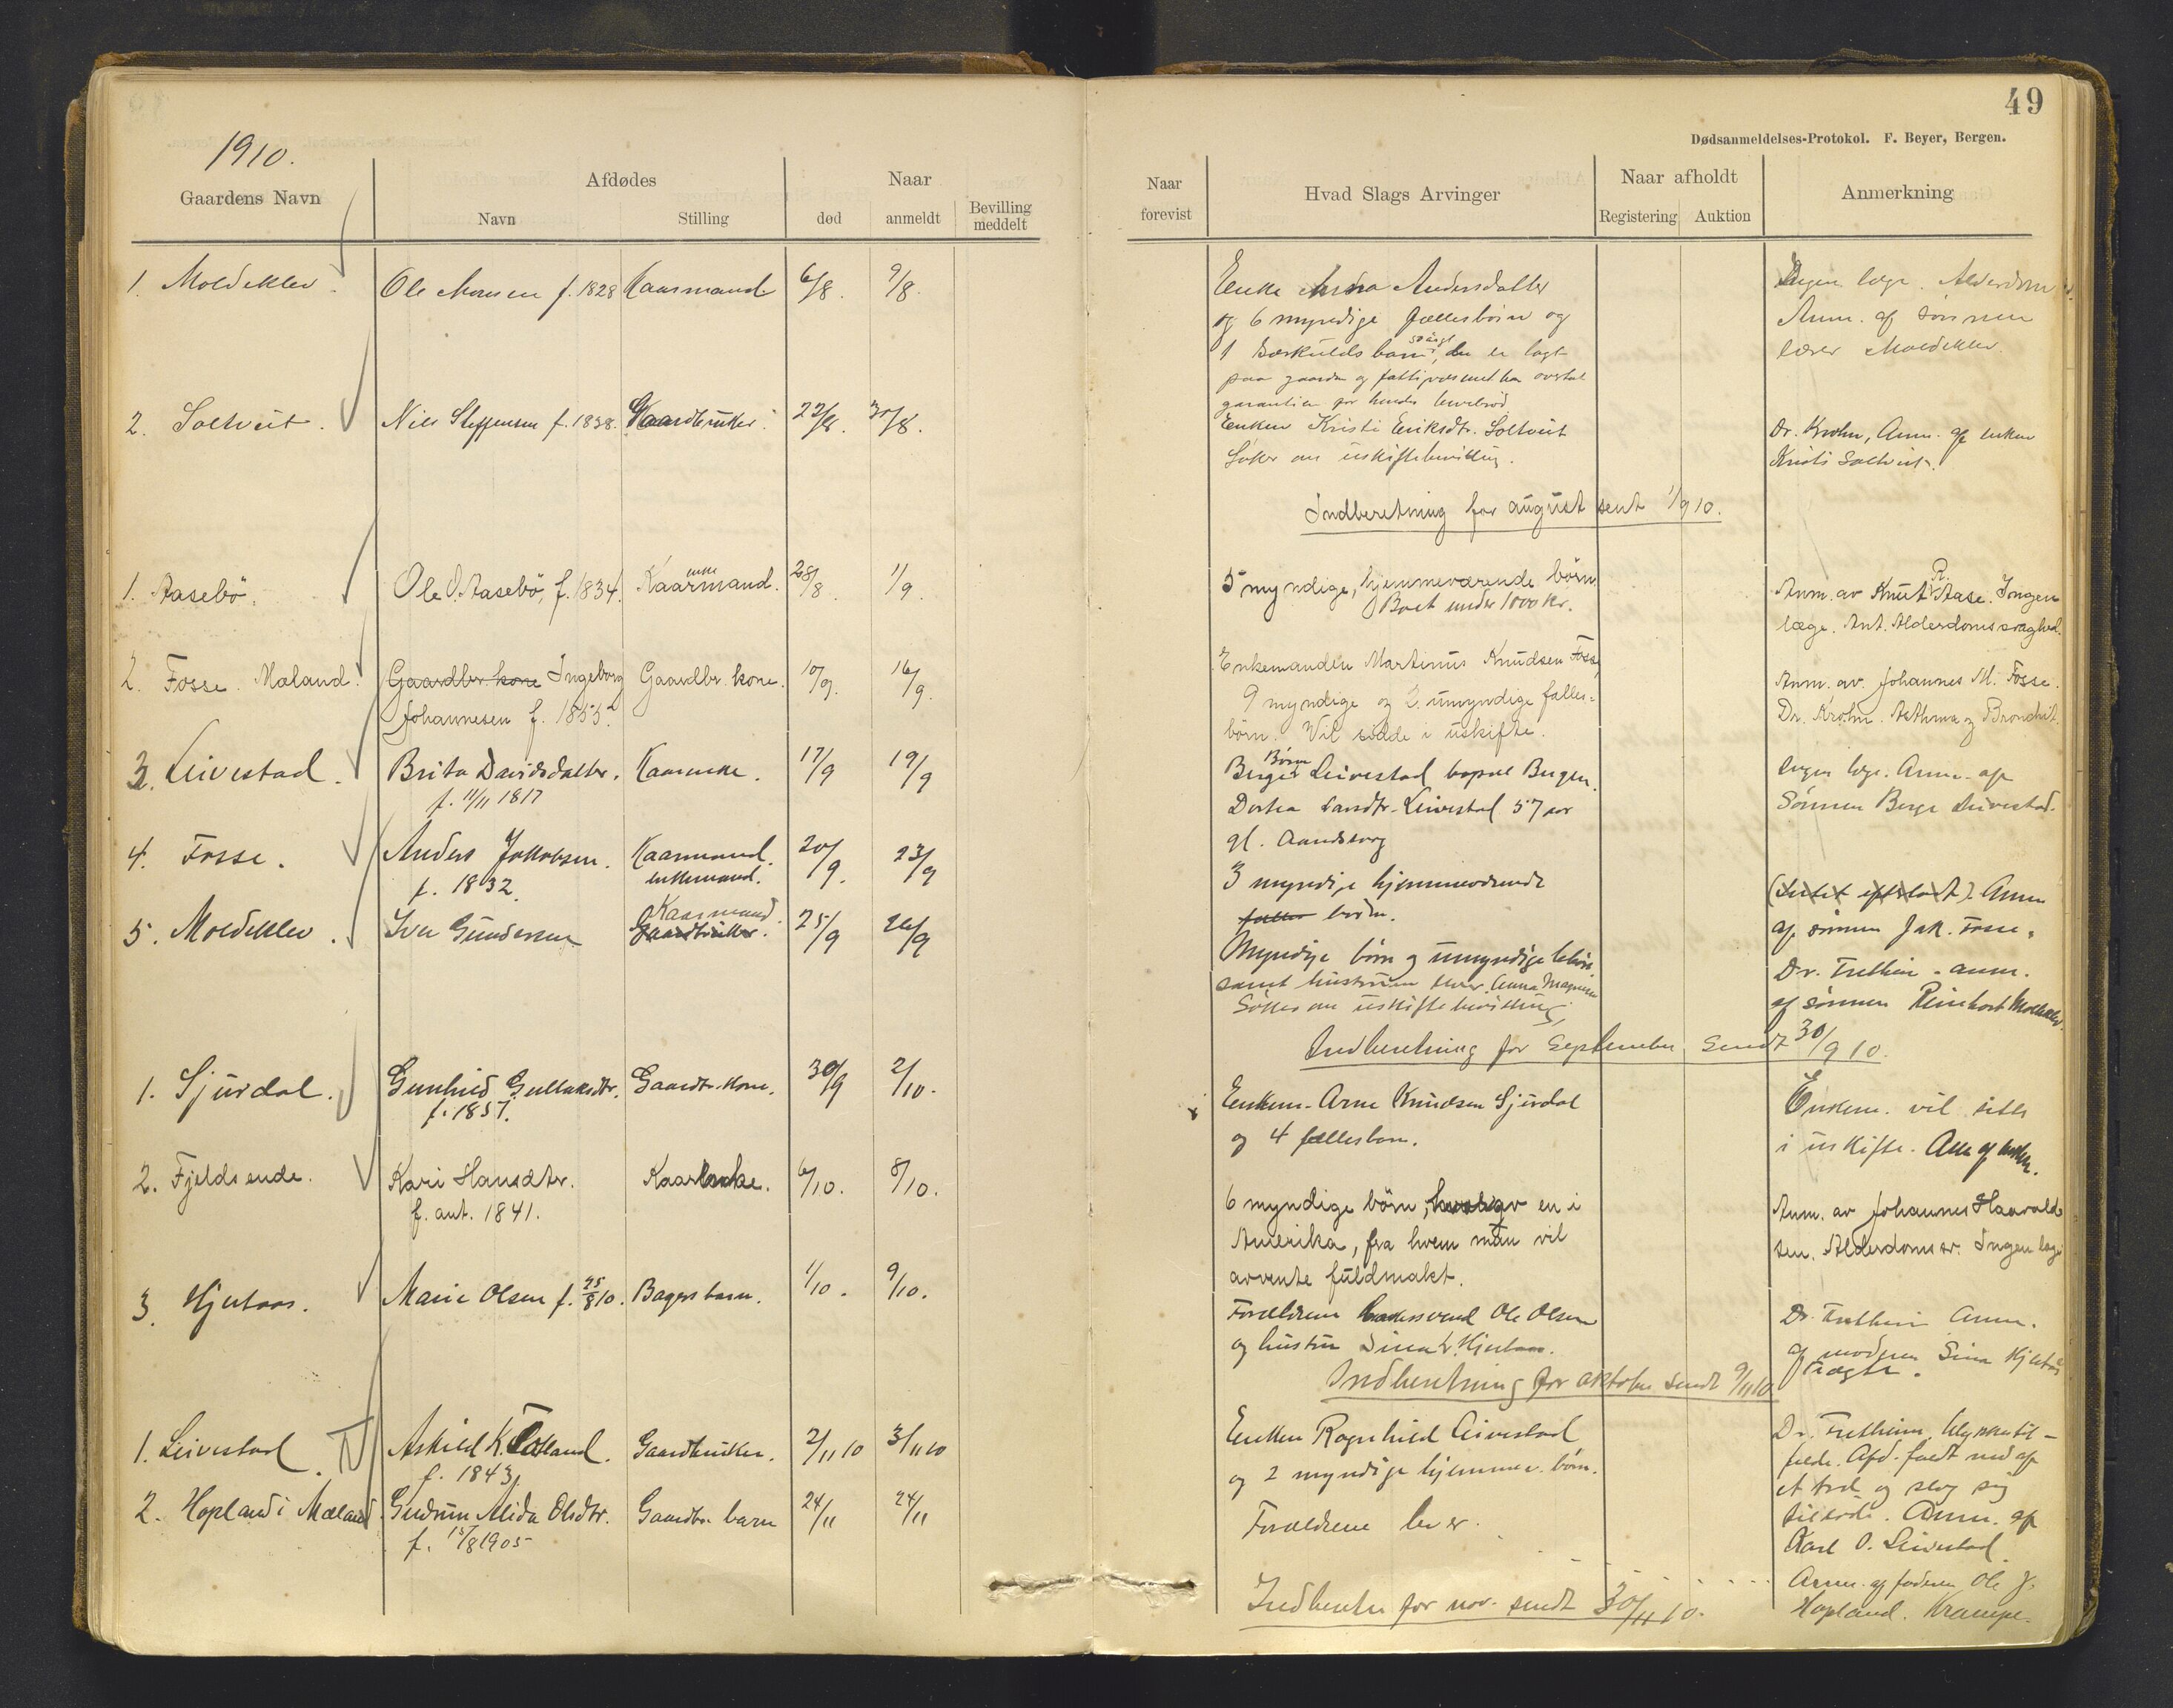 49
Dødsanmeldelses-Protokol. F. Beyer, Bergen.
1910.
Gaardens Navn
Afdødes
Navn
Stilling
Naar
død
anmeldt
Bevilling
meddelt
Naar
forevist
Hvad Slags Arvinger
Naar afholdt
Registering
Auktion
Anmerkning
1. Moldeklev.
Ole Monsen f. 1828
Kaarmand
6/8.
9/8.
Enke Anna Andersdatter
og 6 myndige fællesbörn og
50 aargl
1 særkuldsbarn, der er lagt
paa gaarden og fattigvæsenet har
garantien for hendes levebrød
Ingen læge. Alderdom
Anm. af sönnen
lærer Moldeklev.
2. Soltveit.
Nils Steffensen f. 1838.
Gaardbruker.
22/8.
30/8.
Enken Kristi Eriksdtr. Soltveit
Söker om uskiftebevilling.
Dr. Krohn, Anm. af enken
Kristi Soltveit.
Indberetning for august sent 1/9 10.
1. Aasebö.
Ole O. Aasebö, f. 1834.
enke
Kaarmand.
28/8.
1/9.
5 myndige, hjemmeværende börn
Boet under 1000 Kr.
Anm. av Knut R. Aase. Ingen
læge. Ant. Alderdomssvaghed.
2. Fosse. Mæland.
Gaardbr. kone Ingeborg
Johannesen f. 1855.
Gaardbr. kone.
10/9.
16/9.
Enkemanden Martinus Knudsen Fosse,
9 myndige og 2 umyndige fælles-
börn. Vil sidde i uskifte.
Anm. av. Johannes M. Fosse.
Dr. Krohn. Asthma og Bronchit.
3. Leivestad.
Brita Davidsdatter.
f. 11/11 1817
Kaarenke.
17/9
19/9
Börn
Berger Leivestad bopæl Bergen.
Dortea Larsdtr. Leivestad 57 aar
gl. Aandssvag
Ingen læge. Anm. af
Sönnen Berge Leivestad.
4. Fosse.
Anders Jakobsen.
f. 1832.
Kaarmand.
enkemand.
20/9.
23/9
3 myndige hjemmeværende
fælles börn.
Anm
af sönnen Jak. Fosse.
5. Moldeklev.
Iver Gundersen
Kaarmand
Gaardbruker.
25/9
26/9
Myndige börn og umyndige
samt hustruen Anna Magnesen
Söker om uskiftebevilling.
Dr. Fretheim. anm.
af sönnen Reinhart Moldeklev.
Indberetning for September sendt 30/9 10.
1. Sjurdal.
Gunhild Gullaksdtr.
f. 1857.
Gaardbr. kone.
30/9
2/10.
Enkem. Arne Knudsen Sjurdal
og 4 fællesbarn.
Enkem. vil sitte
i uskifte. Anm af enkem.
2. Fjeldsende.
Kari Hansdtr.
f. ant. 1841.
Kaarenke.
6/10.
8/10.
6 myndige börn, hvorav en i
Amerika, fra hvem man vil
avvente fuldmakt.
Anm. av Johannes Haavald
sen. Alderdomssv. Ingen læge
3. Hjertaas.
Marie Olsen f. 25/8 10.
Bagers barn.
1/10.
9/10.
Forældrene bakersvend Ole Olsen
og hustru Sina L. Hjertaas.
Dr. Fretheim Anm.
af moderen Sina Hjertaas
Indberetning for oktober sendt 9/11 10
1. Leivestad.
Askild K. Totland.
f. 1843
Gaardbruker.
2/11 10
3/11 10
Enken Ragnhild Leivestad
og 2 myndige hjemmev. börn.
Dr. Fretheim. Ulykkestil-
fælde. Afd. faldt ned af
et træ og slog sig
tildöde. Anm. af
Karl O. Leivestad.
2. Hopland i Mæland
Gudrun Alida Olsdtr.
f. 15/8 1905
Gaardbr. barn
24/11
24/11
Forældrene lever.
Anm. af faderen Ole J.
Hopland. Krampe.
Indberetn for nov. sendt 30/11 10.